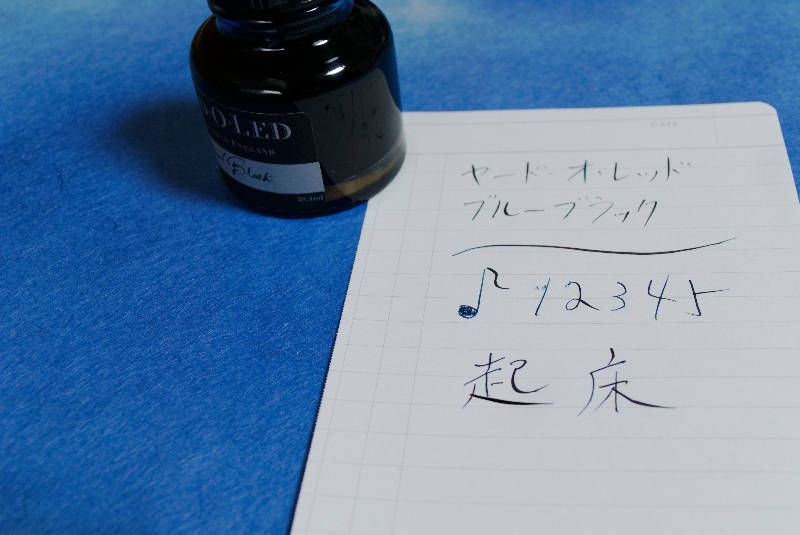 O-LED
ENGLAND
Black
30.4ml
DATE
ヤード・オ・レッド
ブルーブラック
♪ 12345
起床